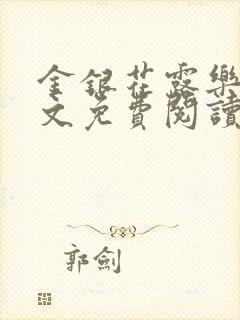 金銀花露樂
文免費閱讀
郭劍